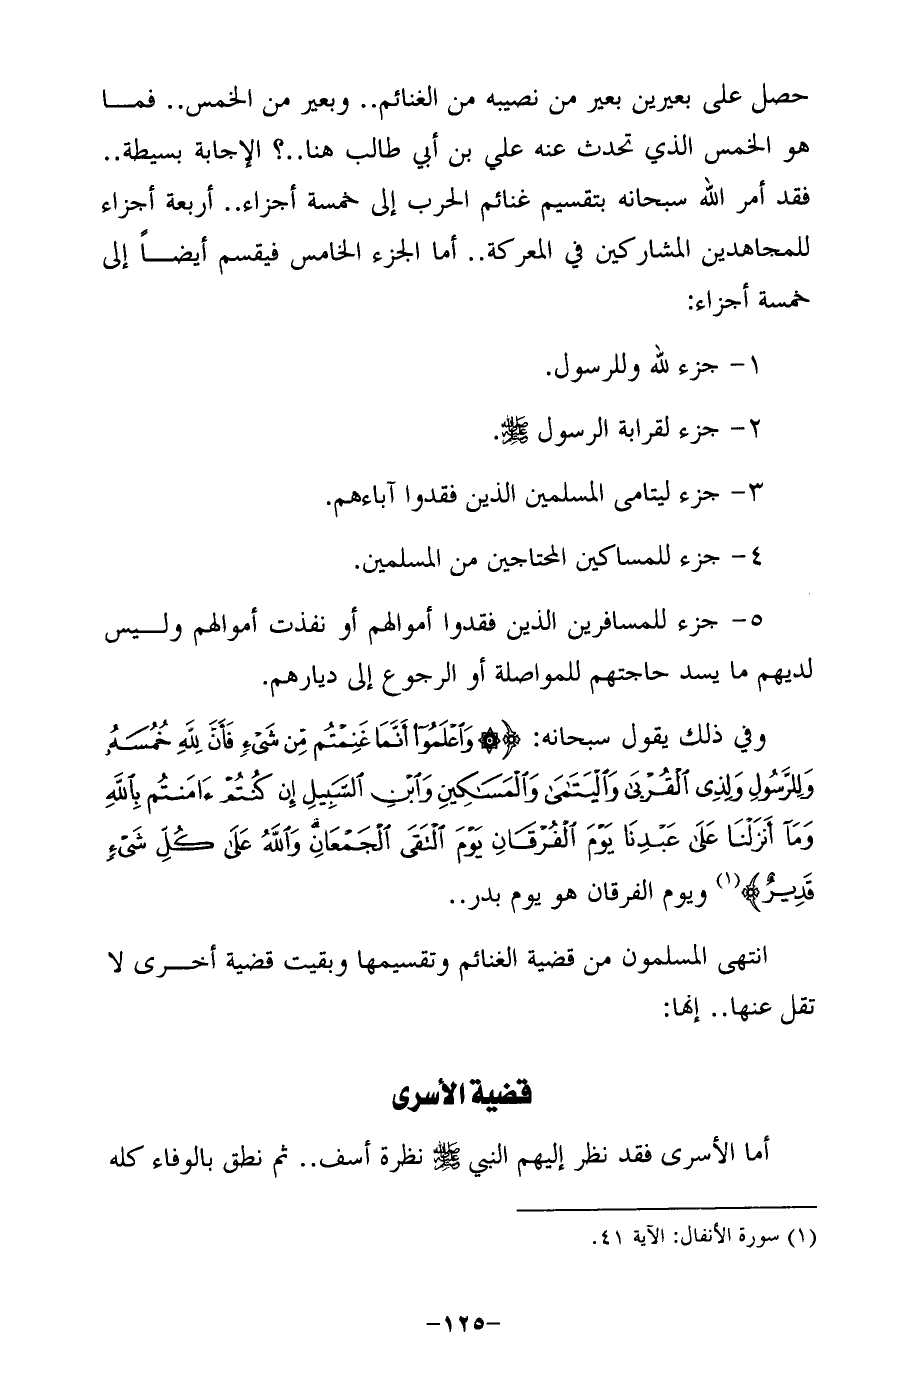 حصل على بعيرين بعير من نصيبه من الغنائم.. وبعير من الخمس.. فمـــا
هو الخمس الذي تحدث عنه علي بن أبي طالب هنا..؟ الإجابة بسيطة..
فقد أمر الله سبحانه بتقسيم غنائم الحرب إلى خمسة أجزاء.. أربعة أجزاء
للمجاهدين المشاركين في المعركة.. أما الجزء الخامس فيقسم أيضـــاً إلى
خمسة أجزاء:
١- جزء لله وللرسول.
٢- جزء لقرابة الرسول ﷺ.
٣- جزء ليتامى المسلمين الذين فقدوا آباءهم.
٤- جزء للمساكين المحتاجين من المسلمين.
٥- جزء للمسافرين الذين فقدوا أموالهم أو نفذت أموالهم ولـــيس
لديهم ما يسد حاجتهم للمواصلة أو الرجوع إلى ديارهم.
وفي ذلك يقول سبحانه: ﴿۞ وَٱعۡلَمُوٓاْ أَنَّمَا غَنِمۡتُم مِّن شَىۡءٍ فَأَنَّ لِلَّهِ خُمُسَهُۥ
وَلِلرَّسُولِ وَلِذِى ٱلۡقُرۡبَىٰ وَٱلۡيَتَـٰمَىٰ وَٱلۡمَسَـٰكِينِ وَٱبۡنِ ٱلسَّبِيلِ إِن كُنتُمۡ ءَامَنتُم بِٱللَّهِ
وَمَآ أَنزَلۡنَا عَلَىٰ عَبۡدِنَا يَوۡمَ ٱلۡفُرۡقَانِ يَوۡمَ ٱلۡتَقَى ٱلۡجَمۡعَانِۗ وَٱللَّهُ عَلَىٰ كُلِّ شَىۡءٍ
قَدِيرٌ﴾(١) ويوم الفرقان هو يوم بدر..
انتهى المسلمون من قضية الغنائم وتقسيمها وبقيت قضية أخـــرى لا
تقل عنها.. إنها:
قضية الأسرى
أما الأسرى فقد نظر إليهم النبي ﷺ نظرة أسف.. ثم نطق بالوفاء كله
(١) سورة الأنفال: الآية ٤١.
-١٢٥-